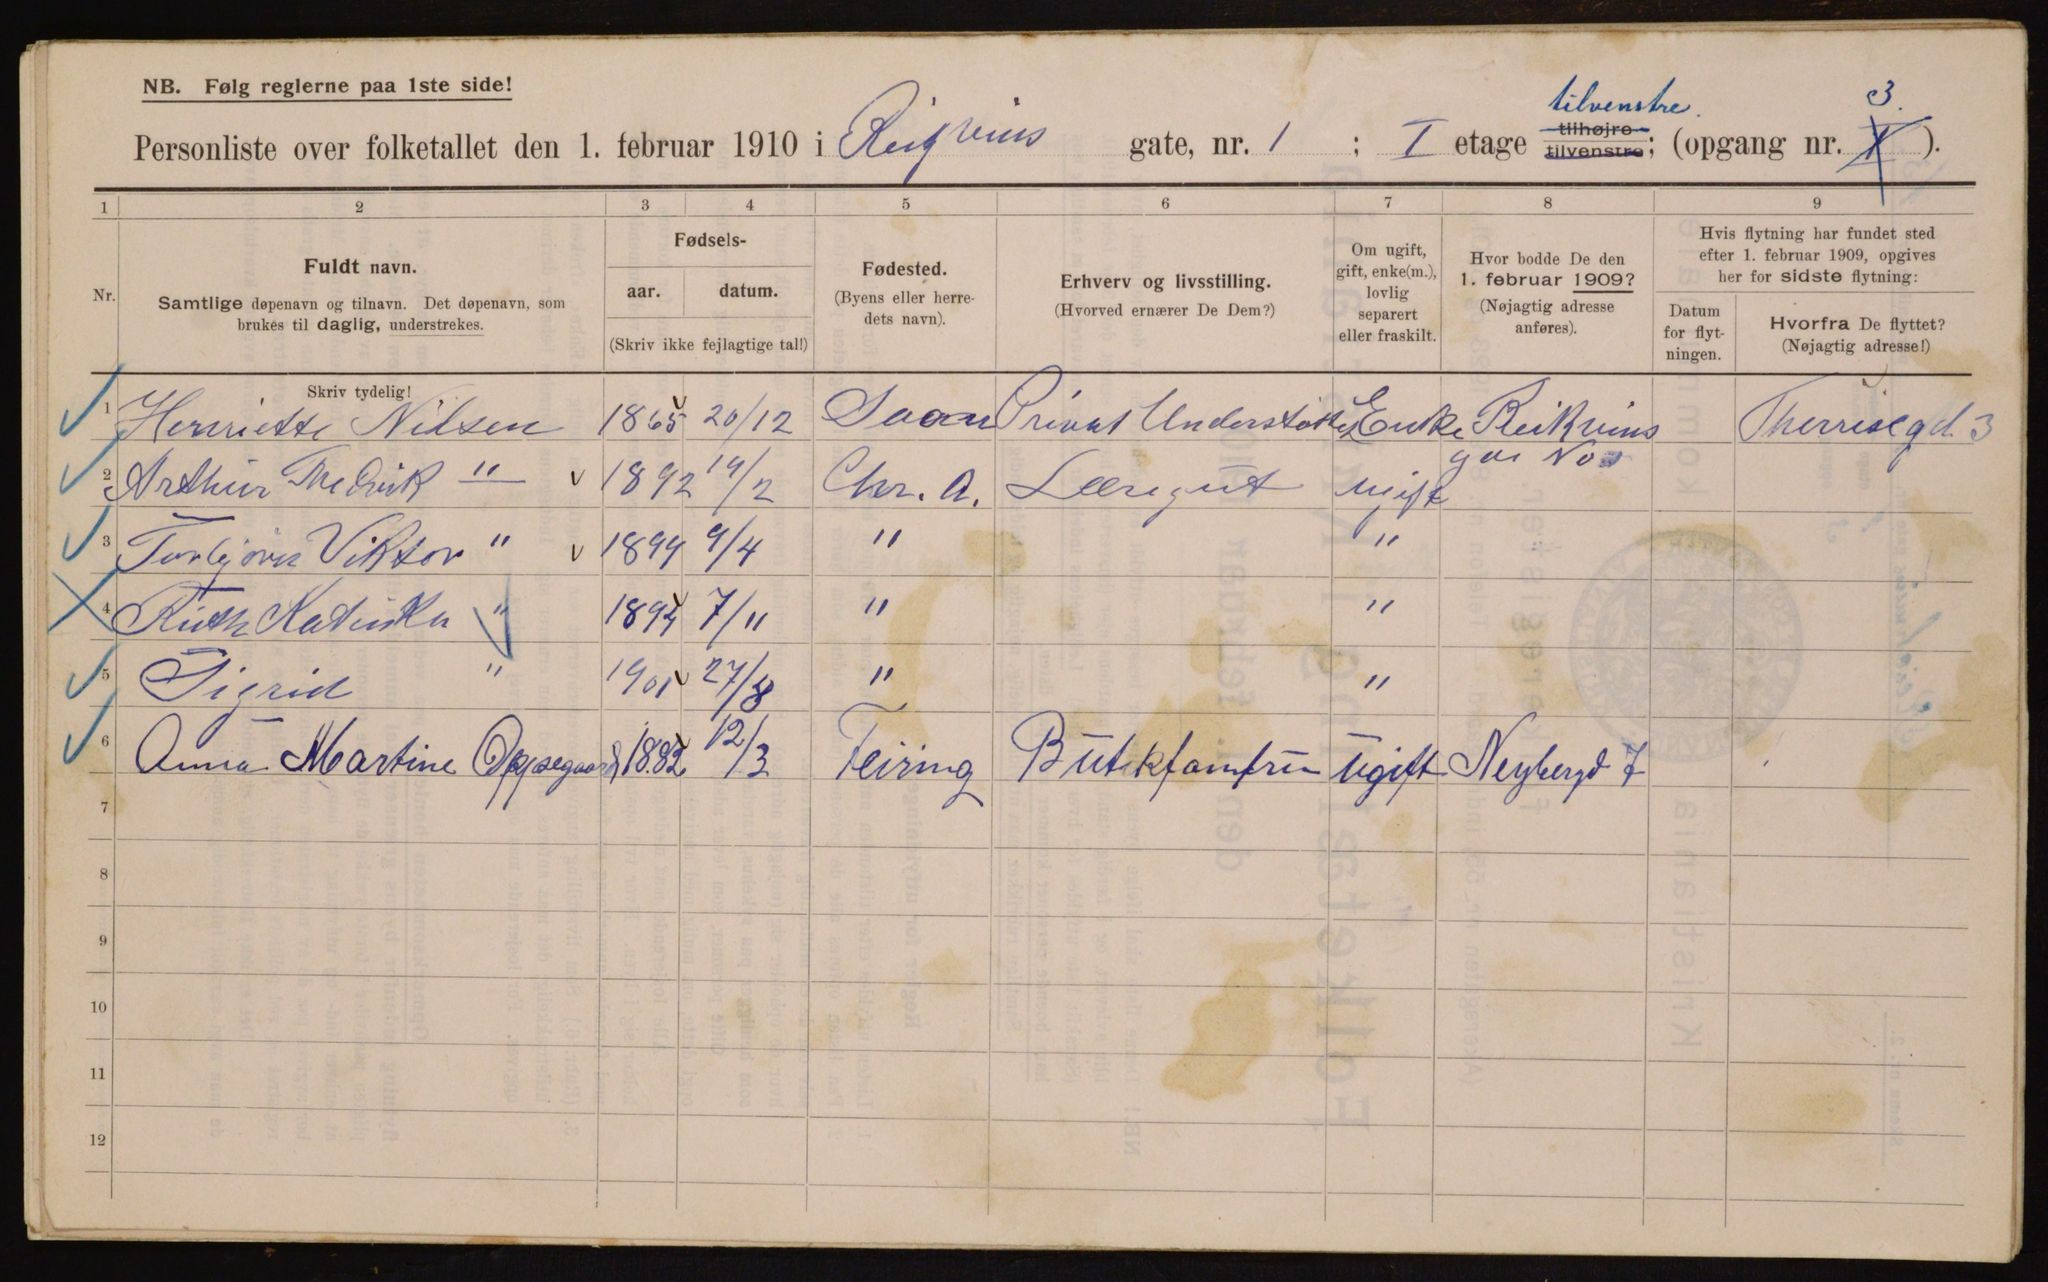 NB. Følg reglerne paa 1ste side!
tilvenstre. 3.
Personliste over folketallet den 1. februar 1910 i Reiqvins gate, nr. 1 ; I etage tilhøjre tilvenstre; (opgang nr. 1 ).
1 2 3 4 5 6 7 8 9
Nr.
Fuldt navn.
Samtlige døpenavn og tilnavn. Det døpenavn, som
brukes til daglig, understrekes.
Skriv tydelig!
Fødsels-
aar. datum.
(Skriv ikke fejlagtige tal!)
Fødested.
(Byens eller herre-
dets navn).
Erhverv og livsstilling.
(Hvorved ernærer De Dem?)
Om ugift,
gift, enke(m.),
lovlig
separert
eller fraskilt.
Hvor bodde De den
1. februar 1909?
(Nøjagtig adresse
anføres).
Hvis flytning har fundet sted
efter 1. februar 1909, opgives
her for sidste flytning:
Datum
for flyt-
ningen.
Hvorfra De flyttet?
(Nøjagtig adresse!)
1 Henriette Nilsen 1865 20/12 Privat Understøttes Enke Reikvins Therrisegd 3
2 Arthur Fredvik " 1892 19/2 Chr. A. Læregut ugift
3 Torbjørn Viktor " 1894 9/4 " "
4 Ruth Katinka " 7/11 " "
5 Sigrid " 1901 27/8 " "
6 Anna Martine Oppegaard 1882 12/3 Feiring Butikjomfru Ugift Neybergd 7
7
8
9
10
11
12